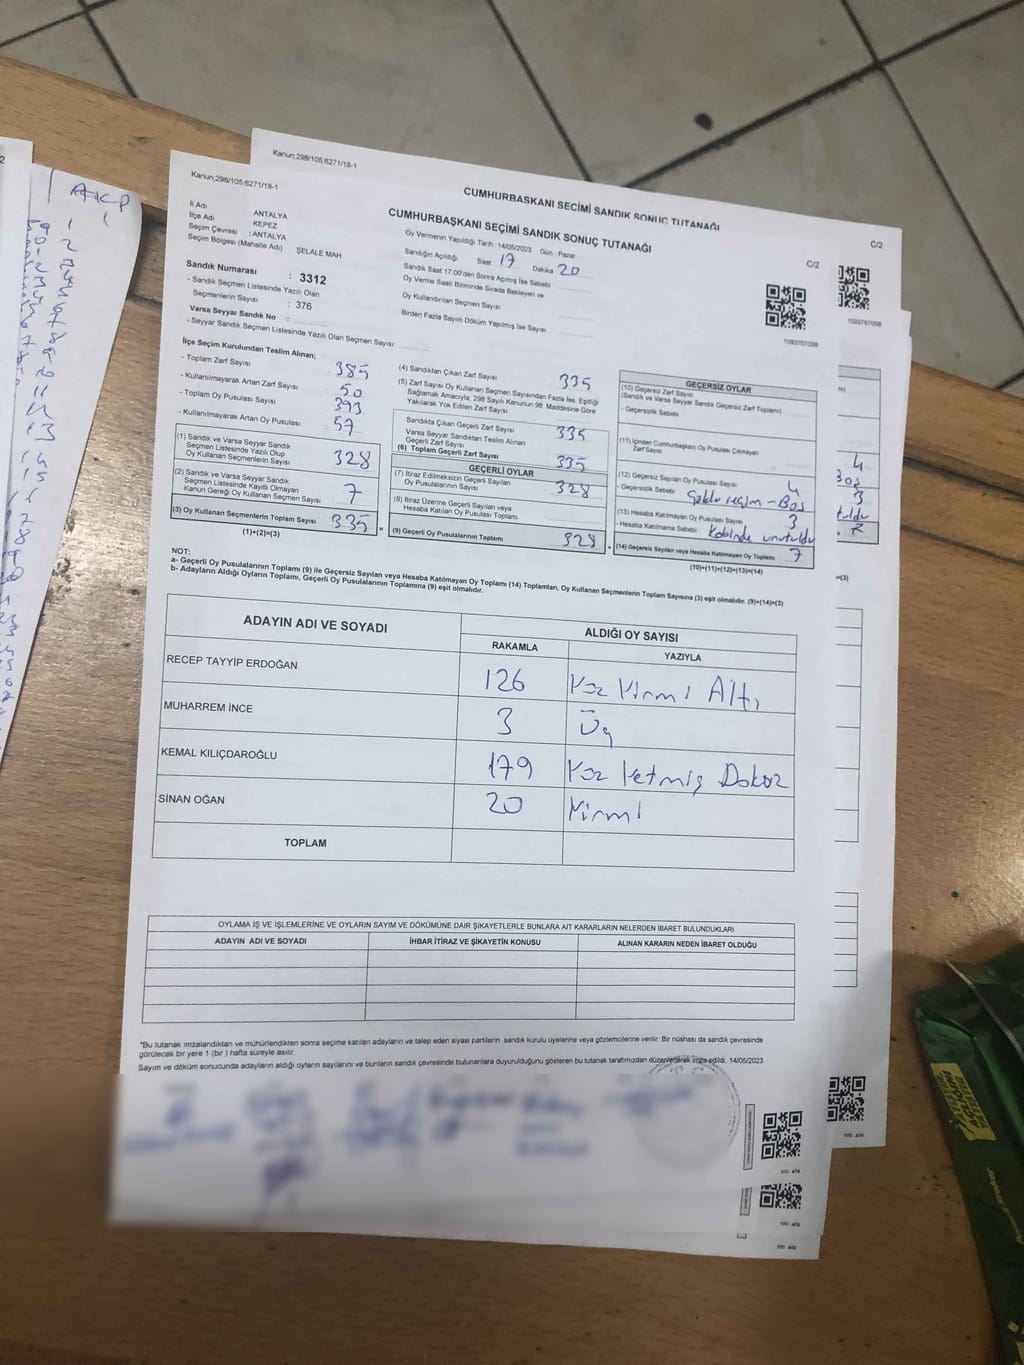 Kanun;298/105;6271/18-1
CUMHURBAŞKANI SEÇİMİ SANDIK SONUÇ TUTANAĞI
C/2
Kanun;298/105;6271/18-1
CUMHURBAŞKANI SEÇİMİ SANDIK SONUÇ TUTANAĞI
C/2
İl Adı ANTALYA
İlçe Adı KEPEZ
Seçim Çevresi : ANTALYA
Seçim Bölgesi (Mahalle Adı) ŞELALE MAH
Sandık Numarası : 3312
- Sandık Seçmen Listesinde Yazılı Olan
Seçmenlerin Sayısı : 376
Varsa Seyyar Sandık No :
- Seyyar Sandık Seçmen Listesinde Yazılı Olan Seçmen Sayısı:
Oy Vermenin Yapıldığı Tarih : 14/05/2023 Gün : Pazar
Sandığın Açıldığı Saat 17 Dakika 20
Sandık Saat 17.00'den Sonra Açımış İse Sebebi
Oy Verme Saati Bitiminde Sırada Bekleyen ve
Oy Kullandırılan Seçmen Sayısı
Birden Fazla Sayım Döküm Yapılmış İse Sayısı
1093767058
1093767058
İlçe Seçim Kurulundan Teslim Alınan;
- Toplam Zarf Sayısı : 385
- Kullanılmayarak Artan Zarf Sayısı : 50
- Toplam Oy Pusulası Sayısı : 393
- Kullanılmayarak Artan Oy Pusulası : 57
(1) Sandık ve Varsa Seyyar Sandık
Seçmen Listesinde Yazılı Olup
Oy Kullanan Seçmenlerin Sayısı 328
(2) Sandık ve Varsa Seyyar Sandık
Seçmen Listesinde Kayıtlı Olmayan
Kanun Gereği Oy Kullanan Seçmen Sayısı 7
(3) Oy Kullanan Seçmenlerin Toplam Sayısı 335
(1)+(2)=(3)
(4) Sandıktan Çıkan Zarf Sayısı 335
(5) Zarf Sayısı Oy Kullanan Seçmen Sayısından Fazla İse, Eşitliği
Sağlamak Amacıyla; 298 Sayılı Kanunun 98. Maddesine Göre
Yakılarak Yok Edilen Zarf Sayısı
Sandıkta Çıkan Geçerli Zarf Sayısı 335
Varsa Seyyar Sandıktan Teslim Alınan
Geçerli Zarf Sayısı
(6) Toplam Geçerli Zarf Sayısı 335
GEÇERLİ OYLAR
(7) İtiraz Edilmeksizin Geçerli Sayılan
Oy Pusulalarının Sayısı 328
(8) İtiraz Üzerine Geçerli Sayılan veya
Hesaba Katılan Oy Pusulası Toplamı
(9) Geçerli Oy Pusulalarının Toplamı 328
GEÇERSİZ OYLAR
(10) Geçersiz Zarf Sayısı
(Sandık ve Varsa Seyyar Sandık Geçersiz Zarf Toplamı)
- Geçersizlik Sebebi
(11) İçinden Cumhurbaşkanı Oy Pusulası Çıkmayan
Zarf Sayısı
(12) Geçersiz Sayılan Oy Pusulası Sayısı 4
- Geçersizlik Sebebi - Boş
(13) Hesaba Katılmayan Oy Pusulası Sayısı 3
- Hesaba Katılmama Sebebi Kabinde unutuldu
(14) Geçersiz Sayılan veya Hesaba Katılmayan Oy Toplamı 7
(10)+(11)+(12)+(13)=(14)
NOT:
a- Geçerli Oy Pusulalarının Toplamı (9) ile Geçersiz Sayılan veya Hesaba Katılmayan Oy Toplamı (14) Toplamları, Oy Kullanan Seçmenlerin Toplam Sayısına (3) eşit olmalıdır. (9)+(14)=(3)
b- Adayların Aldığı Oyların Toplamı, Geçerli Oy Pusulalarının Toplamına (9) eşit olmalıdır.
ADAYIN ADI VE SOYADI ALDIĞI OY SAYISI
RAKAMLA YAZIYLA
RECEP TAYYİP ERDOĞAN 126 Yüz Yirmi Altı
MUHARREM İNCE 3 Üç
KEMAL KILIÇDAROĞLU 179 Yüz Yetmiş Dokuz
SİNAN OĞAN 20 Yirmi
TOPLAM
OYLAMA İŞ VE İŞLEMLERİNE VE OYLARIN SAYIM VE DÖKÜMÜNE DAİR ŞİKAYETLERLE BUNLARA AİT KARARLARIN NELERDEN İBARET BULUNDUKLARI
ADAYIN ADI VE SOYADI İHBAR İTİRAZ VE ŞİKAYETİN KONUSU ALINAN KARARIN NEDEN İBARET OLDUĞU
"Bu tutanak imzalandıktan ve mühürlendikten sonra seçime katılan adayların ve talep eden siyasi partilerin sandık kurulu üyelerine veya gözlemcilerine verilir. Bir nüshası da sandık çevresinde
görülecek bir yere 1 (bir ) hafta süreyle asılır.
Sayım ve döküm sonucunda adayların aldığı oyların sayılarını ve bunların sandık çevresinde bulunanlara duyurulduğunu gösteren bu tutanak tarafımızdan düzenlenerek imza edildi. 14/05/2023
AKP